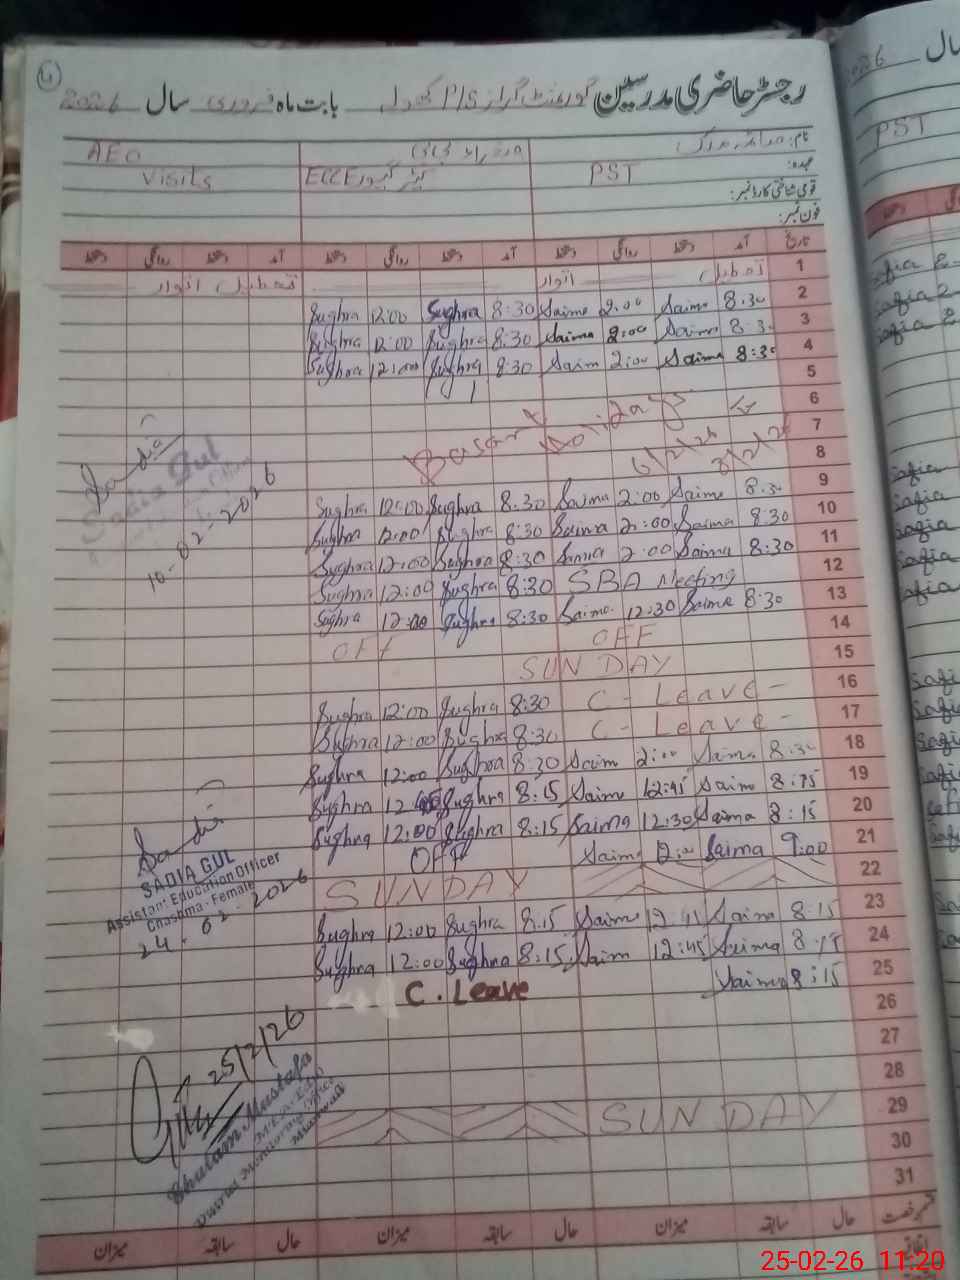 رجسٹر حاضری مدرسین گورنمنٹ گرلز P/S بابت ماہ فروری سال 2026
نام:
AEO
عہدہ: PST
ECCE کیئر گیور
Visits
قومی شناختی کارڈ نمبر:
فون نمبر:
تاریخ آمد دستخط روانگی دستخط آمد دستخط روانگی دستخط آمد دستخط روانگی دستخط
1 تعطیل اتوار تعطیل اتوار
2 8:30 Saima 2:00 Saima 8:30 Sughra 12:00 Sughra
3 8:30 Saima 2:00 Saima 8:30 Sughra 12:00 Sughra
4 8:30 Saima 2:00 Saim 8:30 Sughra 12:00 Sughra
5
6 Basant Holidays
7 6/2/26 8/2/26
8
9 8:30 Saima 2:00 Saima 8:30 Sughra 12:00 Sughra
10 8:30 Saima 2:00 Saima 8:30 Sughra 12:00 Sughra
11 8:30 Saima 2:00 Saima 8:30 Sughra 12:00 Sughra
12 SBA Meeting 8:30 Sughra 12:00 Sughra
13 8:30 Saima 12:30 Saima 8:30 Sughra 12:00 Sughra
14 OFF OFF
15 SUNDAY
16 C - Leave - 8:30 Sughra 12:00 Sughra
17 C - Leave - 8:30 Sughra 12:00 Sughra
18 8:30 Saima 2:00 Saim 8:30 Sughra 12:00 Sughra
19 8:15 Saima 12:45 Saima 8:15 Sughra 12 Sughra
20 8:15 Saima 12:30 Saima 8:15 Sughra 12:00 Sughra
21 9:00 Saima 12:00 Saima OFF
22 SUNDAY
23 8:15 Saima 12:45 Saima 8:15 Sughra 12:00 Sughra
24 8:15 Saima 12:45 Saim 8:15 Sughra 12:00 Sughra
25 8:15 Saima C. Leave
26
27
28
29 SUNDAY
30
31
Sadia
Sadia Gul
10-02-2026
Sadia
SADIA GUL
Assistant Education Officer
Chashma-Female
24-02-2026
25/2/26
Ghulam Mustafa
District Monitoring Officer
Mianwali
حال سابقہ میزان حال سابقہ میزان حال سابقہ میزان
سال 2026
PST
25-02-26 11:20